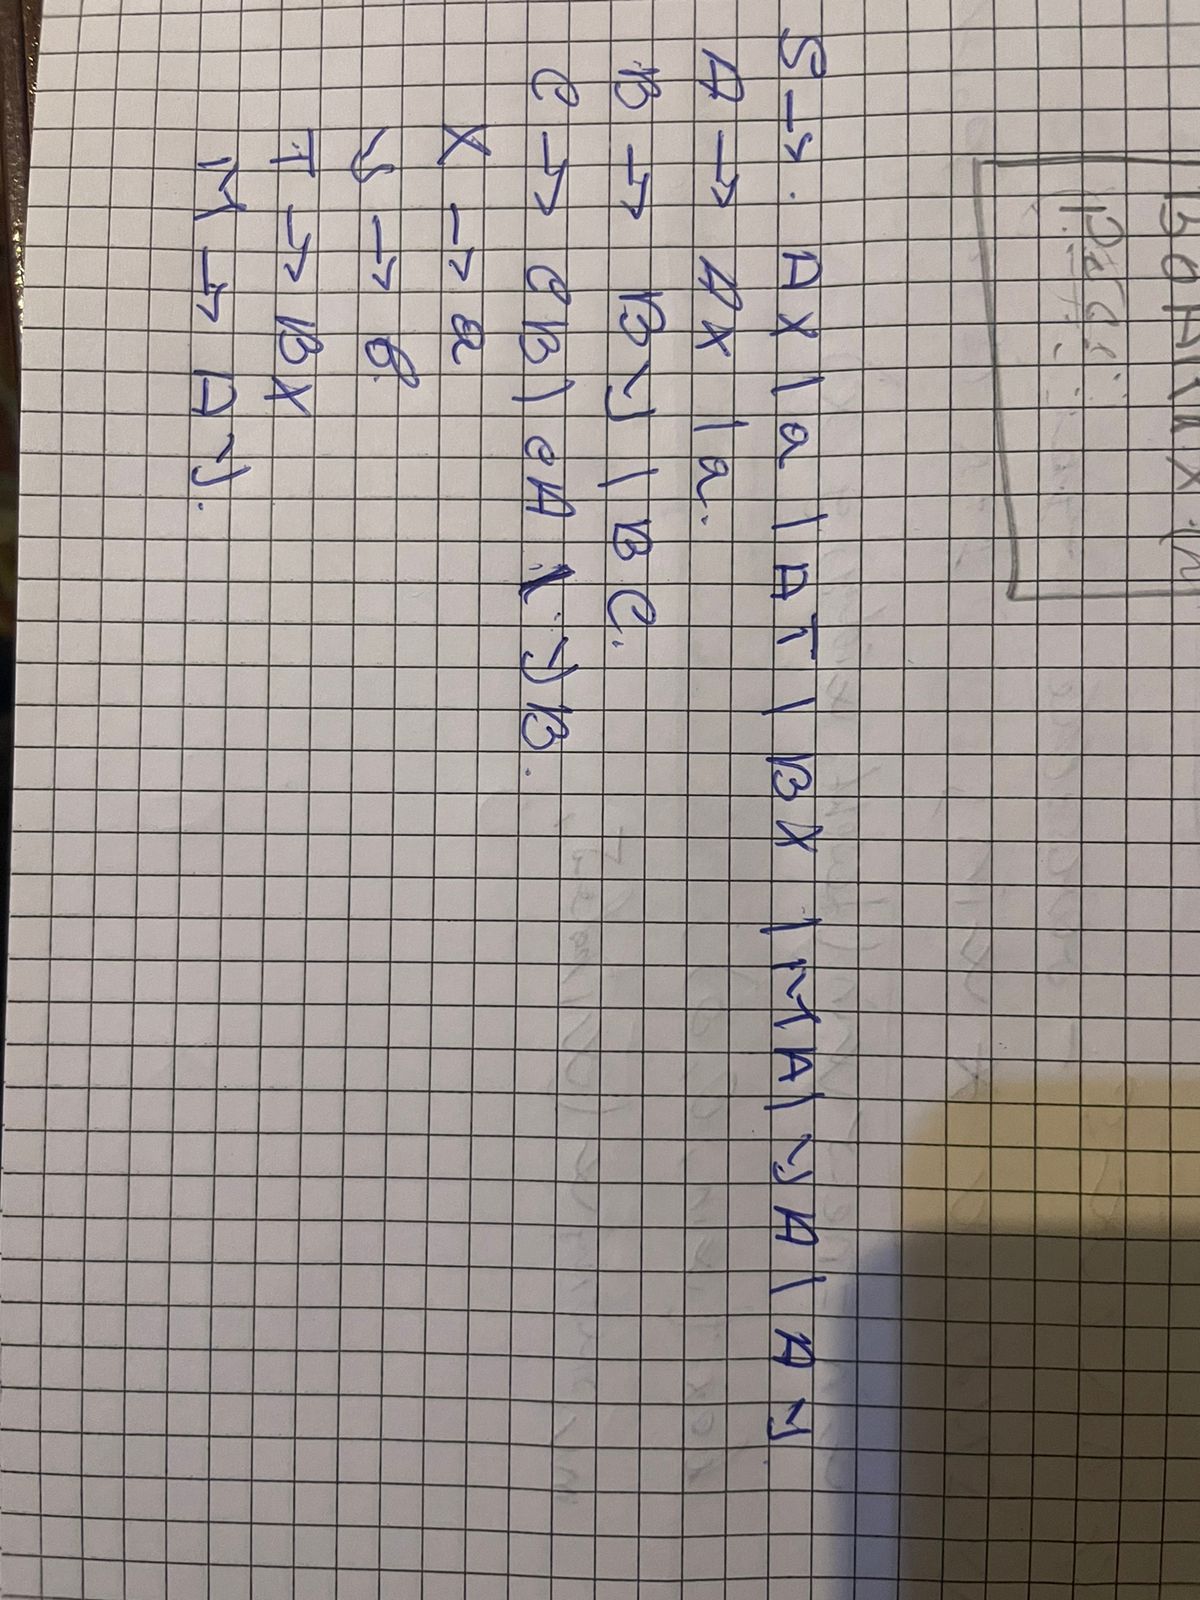 S → . AX | a | AT | BX | MA | YA | AY
A → AX | a.
B → BY | BC.
C → CB | CA | YB.
X → a
Y → b.
T → BX
M → AY.